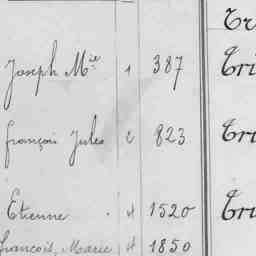 Tr
Joseph Mie 1 387 Tri
françois Jules 2 823 Tri
Etienne 4 1520 Tri
françois, Marie 4 1850